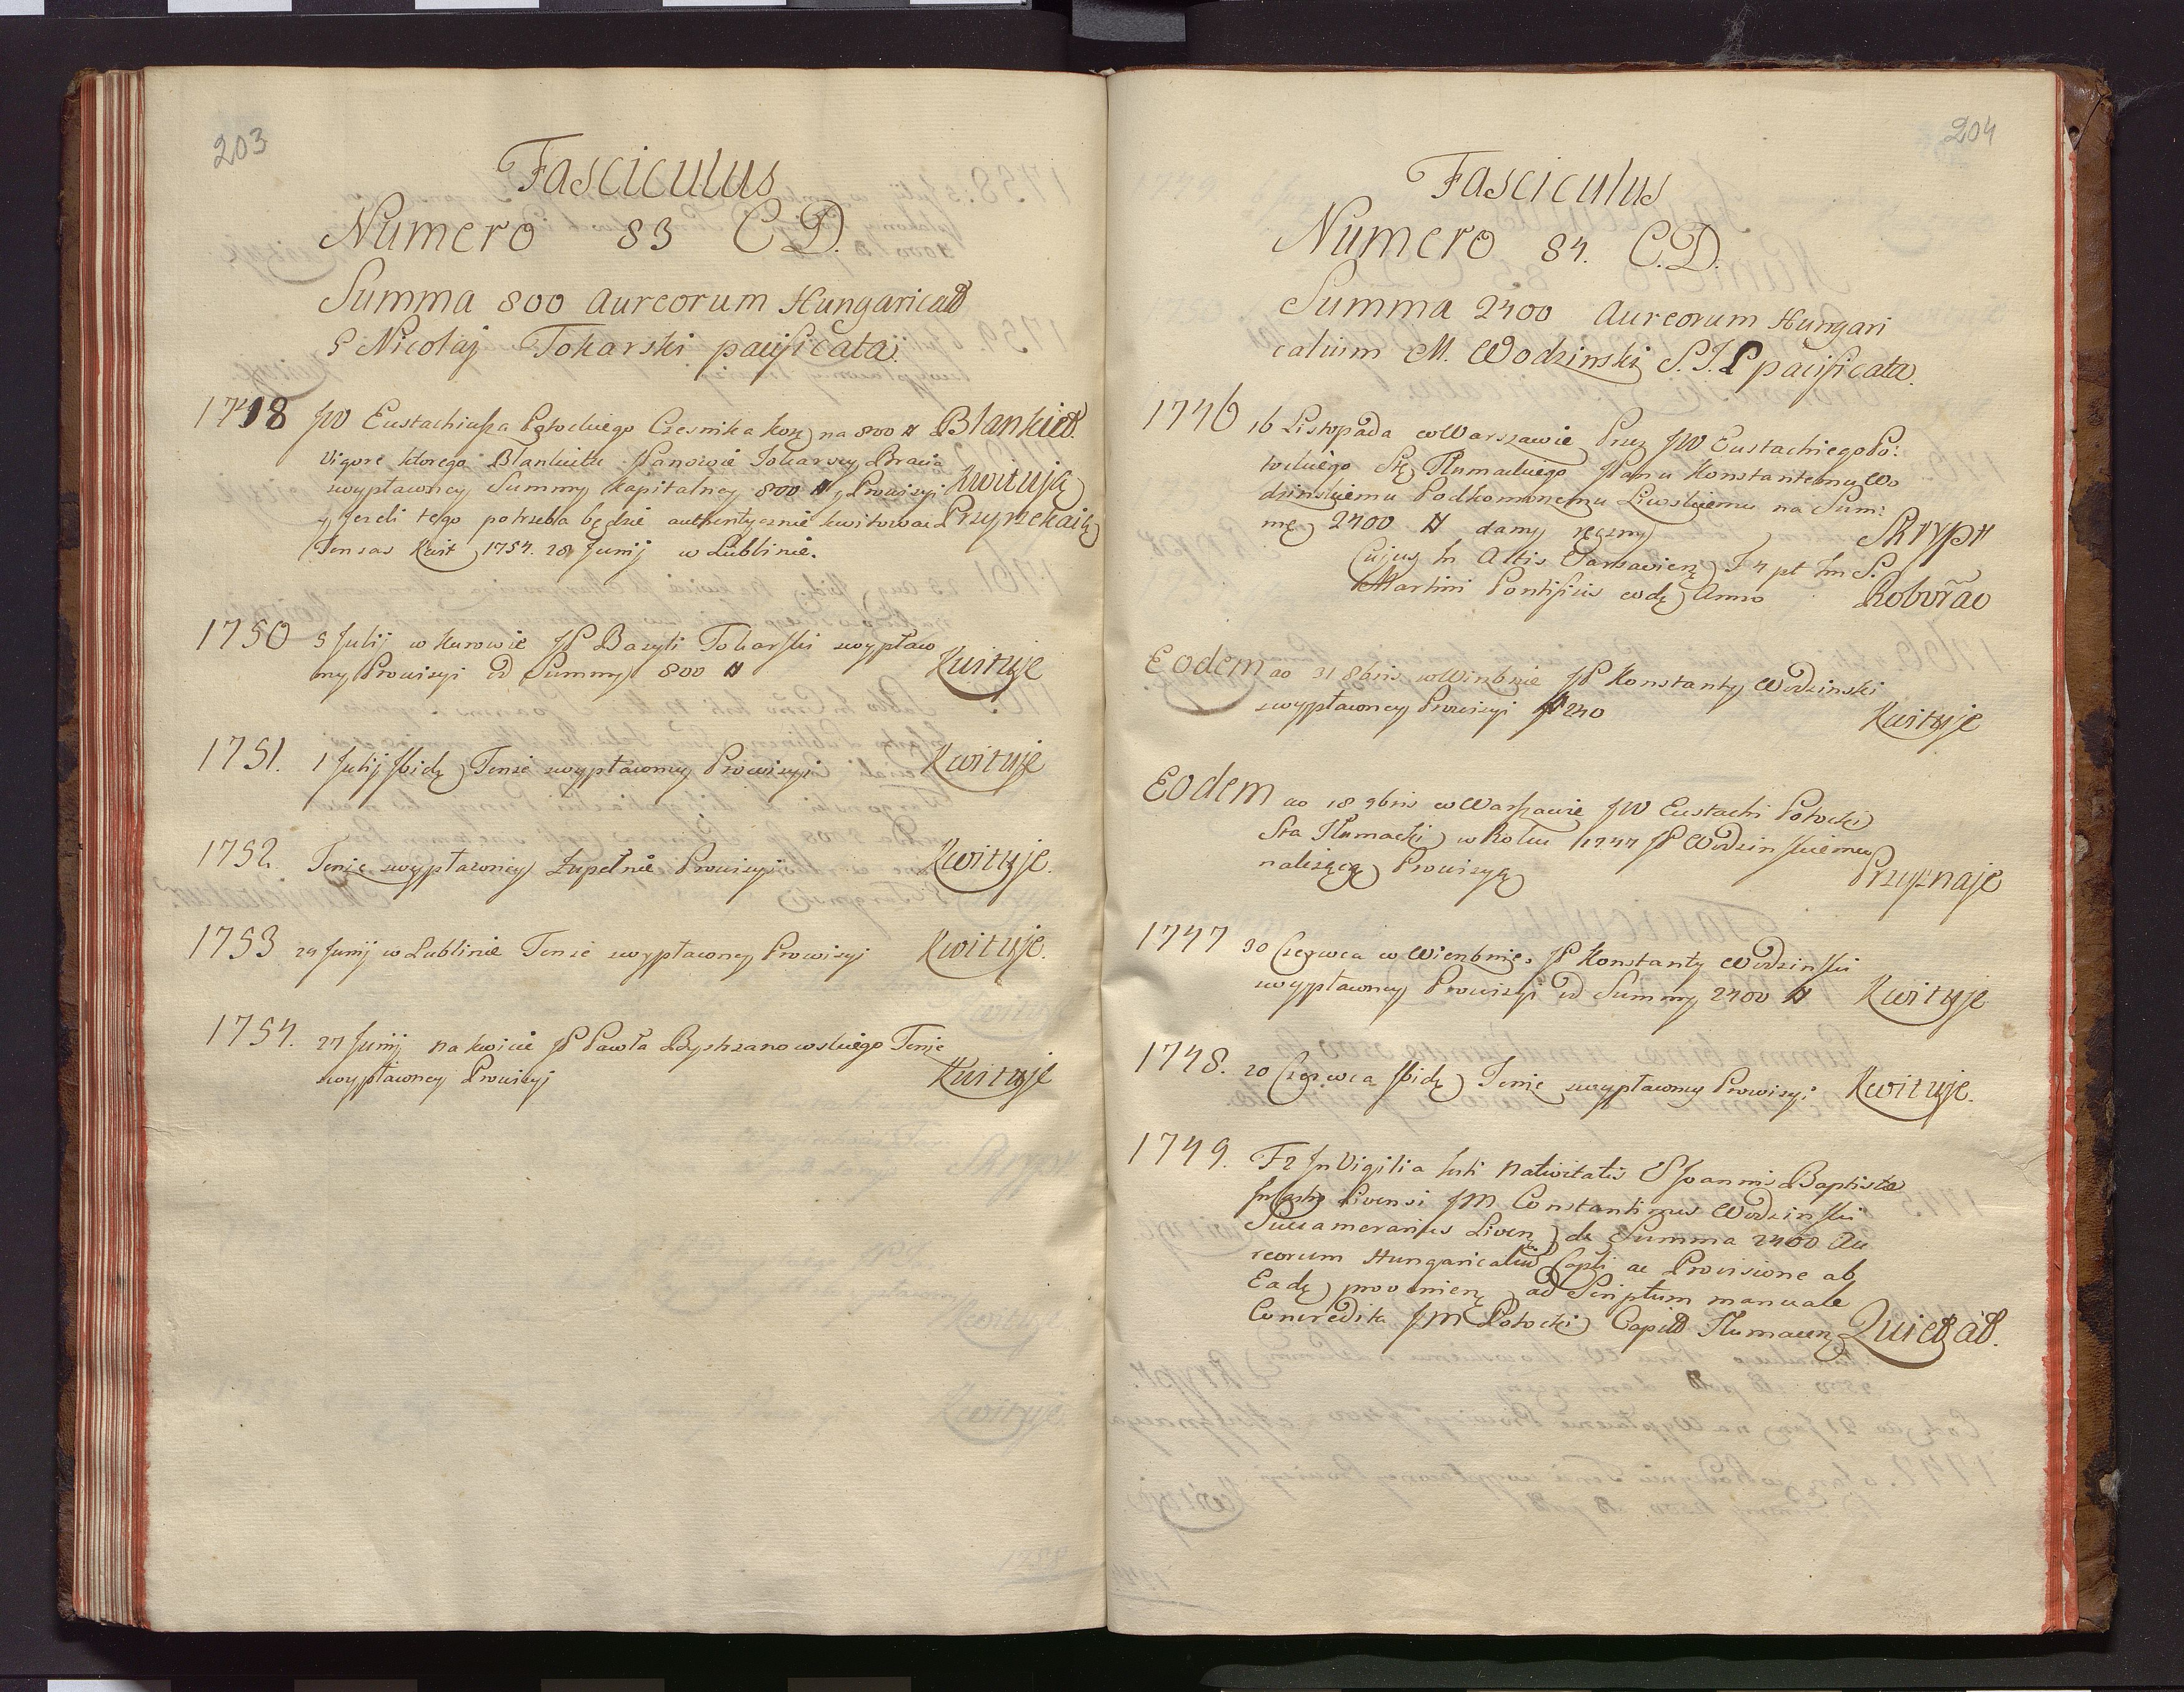 203
Fasciculus
Numero 83 C.D.
Summa 800 Aureorum Hungaricał
Nicolaj Tokarski pacificata.
1748 JW Eustachiusza Potockiego Cześnika Kor na 800 # Blankiet.
Vigore ktorego Blankietu Panowie Tokarscy Bracia
wypłaconey Summy Kapitalney 800 # y Prowizyi Kwitują
y jezeli tego potrzeba będzie authentycznie kwitować Przyrzekaią
Kwit 1754. 28 Junij w Lublinie.
1750 5 Julij w Kurowie JP Bazyli Tokarski wypłaco
ney Prowizyi od Summy 800 # Kwituje
1751. 1 Julij Ibidę Tenże wypłaconey Prowizyi Kwituje
1752. Tenże wypłaconey zupełnie Prowizyi Kwituje.
1753 24 Junij w Lublinie Tenże wypłaconey Prowizyi Kwituje.
1754. 27 Junij na kwicie JP Pawła Bystrzanowskiego Tenże
wypłaconey Prowizyj Kwituje
204
Fasciculus
Numero 84. C.D.
Summa 2400 Aureorum Hungari
calium M. Wodzinski pacificata.
1746 16 Listopada w Warszawie Przez JW Eustachiego Po:
tockiego Stę Tłumackiego Panu Konstantemu Wo
dzinskiemu Podkomorzemu Liwskiemu na Sum:
mę 2400 # dany ręczny Skrypt
Cujus In Actis Varsavien F 4 pt Im S.
Martini Pontificis eodę Anno Roborao
Eodem ao 31 8bris w Wierzbnie JP Konstanty Wodzinski
wypłaconey Prowizyi # 240 Kwituje
Eodem ao 18 9bris w Warszawie JW Eustachi Potocki
Sta Tłumacki w Roku 1747 JP Wodzinskiemu
należącą Prowizyą Przyznaje
1747 30 Czerwca w Wierzbnie JP Konstanty Wodzinski
wypłaconey Prowizyi od Summy 2400 # Kwituje
1748. 20 Czerwca Ibidę Tenże wypłaconey Prowizyi Kwituje.
1749. F2 In Vigilia festi Nativitatis S Joannis Baptistæ
In Castro Livensi JM Constantinus Wodzinski
Succamerarius Liven de Summa 2400 Au
reorum Hungaricaliu Capli ac Provisione ab
Eadę provenien ad Scriptum manuale
Concredita JM Potocki Capit Tłumacen Quietat.